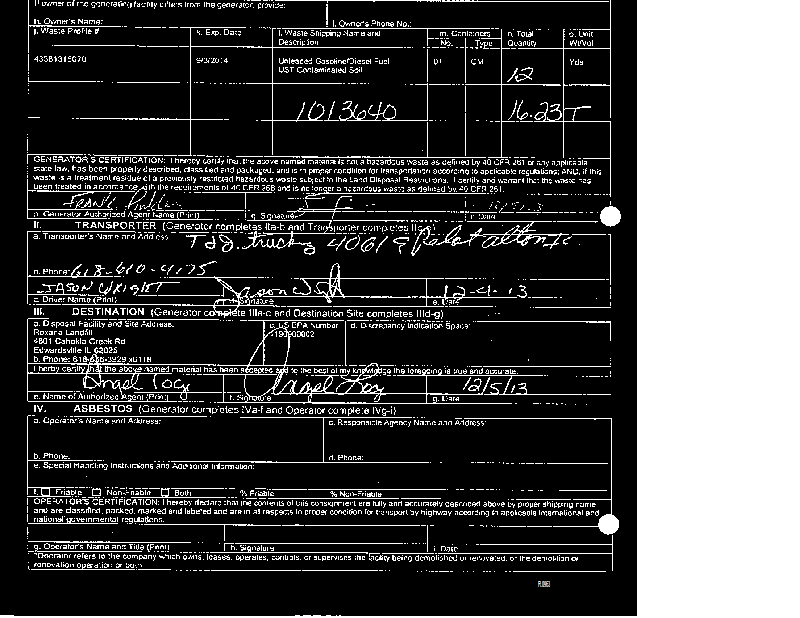 If owner of the generating facility differs from the generator, provide:
h. Owner's Name: i. Owner's Phone No.:
j. Waste Profile # k. Exp. Date l. Waste Shipping Name and Description m. Containers No. Type n. Total Quantity o. Unit Wt/Vol
9/3/2014 Unleaded Gasoline/Diesel Fuel UST Contaminated Soil 01 CM 12 Yds
1013640 16.23 T
GENERATOR'S CERTIFICATION: I hereby certify that the above named material is not a hazardous waste as defined by 40 CFR 261 or any applicable
state law, has been properly described, classified and packaged, and is in proper condition for transportation according to applicable regulations; AND, if this
waste is a treatment residue of a previously restricted hazardous waste subject to the Land Disposal Restrictions. I certify and warrant that the waste has
been treated in accordance with the requirements of 40 CFR 268 and is no longer a hazardous waste as defined by 40 CFR 261.
Frank
p. Generator Authorized Agent Name (Print) q. Signature r. Date
II. TRANSPORTER (Generator completes IIa-b and Transporter completes IIc-e)
a. Transporter's Name and Address: T & J trucking
b. Phone: 618-610-4175
JASON WRIGHT Jason 12-4-13
c. Driver Name (Print) d. Signature e. Date
III. DESTINATION (Generator complete IIIa-c and Destination Site completes IIId-g)
a. Disposal Facility and Site Address: c. US EPA Number d. Discrepancy Indication Space:
Roxana Landfill
4601 Cahokia Creek Rd
Edwardsville IL 62025
b. Phone: 618-656-3929 x0118
I hereby certify that the above named material has been accepted and to the best of my knowledge the foregoing is true and accurate.
Angel Loy Angel Loy 12/5/13
e. Name of Authorized Agent (Print) f. Signature g. Date
IV. ASBESTOS (Generator completes IVa-f and Operator complete IVg-i)
a. Operator's Name and Address: c. Responsible Agency Name and Address:
b. Phone: d. Phone:
e. Special Handling Instructions and Additional Information:
f. Friable Non-Friable Both % Friable % Non-Friable
OPERATOR'S CERTIFICATION: I hereby declare that the contents of this consignment are fully and accurately described above by proper shipping name
and are classified, packed, marked and labeled and are in all respects in proper condition for transport by highway according to applicable international and
national governmental regulations.
g. Operator's Name and Title (Print) h. Signature i. Date
*Operator refers to the company which owns, leases, operates, controls, or supervises the facility being demolished or renovated, or the demolition or
renovation operation or both